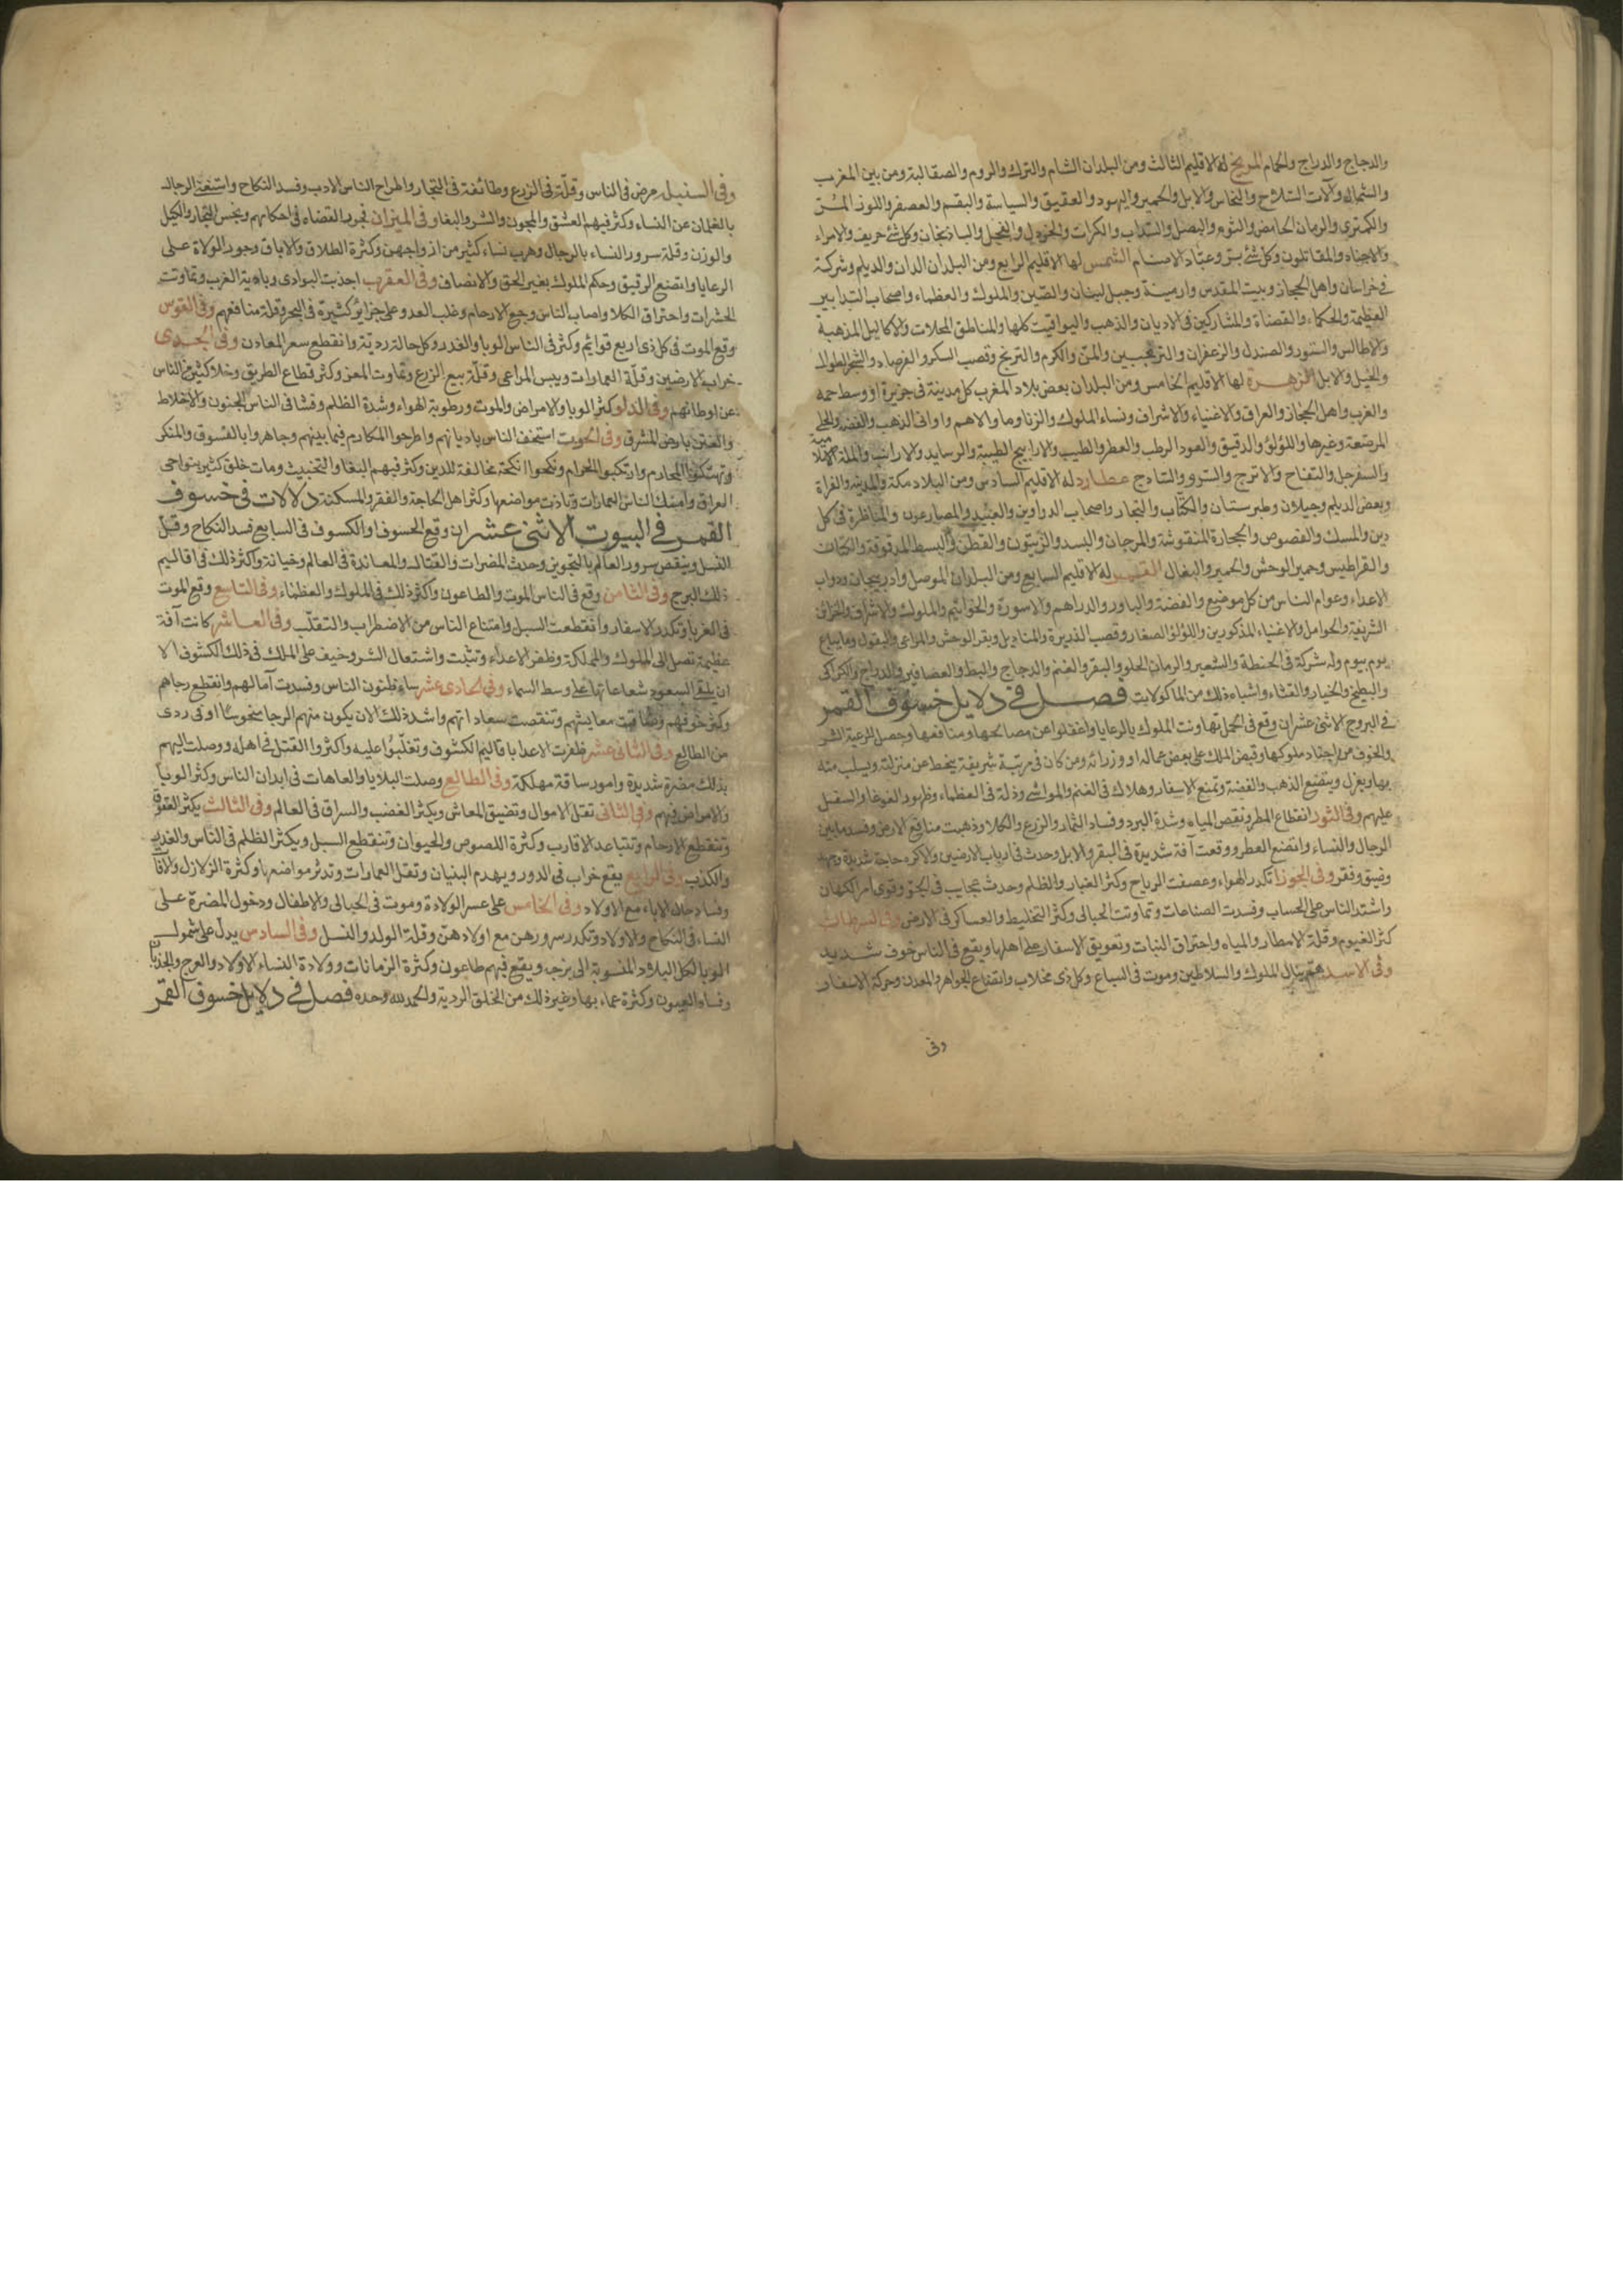 والدجاج والدراج والحمام المريخ له الاقليم الثالث ومن البلدان الشام والترك والروم والصقالبة ومن بين المغرب
والشمال وآلات السلاح والنحاس والابل والحمير واليهود والعقيق والسياسة والبقم والعصفر واللوز المــر
والكمثرى والرمان الحامض والثوم والبصل والسداب والكراث والخردل والفجل والباذنجان وكل شئ حريف والامراء
والاجناد والمقاتلون وكل شئ وعباد الاصنام الشمس لها الاقليم الرابع ومن البلدان الدان والديلم وشركة
فى خراسان واهل الحجاز وبيت المقدس وارمينية وجبل لبنان والصين والملوك والعظماء واصحاب التدابير
العظيمة والحكماء والقضاة والمشاركين فى الاديان والذهب واليواقيت كلها والمناطق المحلات والاكاليل المذهبة
والاطالس والسنور والصندل والزعفران والترنجبين والمن والكرم والترنج وقصب السكر والفرصاد والشجر الطوال
والخيل والابل الزهرة لها الاقليم الخامس ومن البلدان بعض بلاد المغرب كل مدينة فى جزيرة او وسط
والعرب واهل الحجاز والعراق والاغنياء والاشراف ونساء الملوك والزنا وما والاهم واوانى الذهب والفضة والحلى
المرصعة وغيرها واللؤلؤ والدقيق والعود الرطب والعطر والطيب والاراييج الطيبة والارانب
والسفرجل والتفاح والاترج والسرو والساذج عطارد له الاقليم السادس ومن البلاد مكة والمدينة
وبعض الديلم وجيلان وطبرستان والكتاب والتجار واصحاب الدواوين والعبيد والمصارعون والمناظرة فى كل
دين والمسك والفصوص والحجارة المنقوشة والمرجان والبسد والزيتون والقطن والبسط المدقوقة والكتان
والقراطيس وحمير الوحش والحمير والبغال القمر له الاقليم السابع ومن البلدان الموصل وآذربيجان ودواب
الاعداء وعوام الناس من كل موضع والفضة والبلور والدراهم والاسورة والخواتيم والملوك والاشراف
الشريفة والحوامل والاغنياء المذكورين واللؤلؤ الصغار وقصب الذريرة والمناديل وبقر الوحش والمراعى والبقول وما يباع
يوم بيوم وله شركة فى الحنطة والشعير والرمان الحلو والبقر والغنم والدجاج والبط والعصافير والدراج والكراكى
والبطيخ والخيار والقثاء واشباه ذلك من الماكولات فصل فى دلايل خسوف القمر
فى البروج الاثنى عشر ان وقع فى الحمل تهاونت الملوك بالرعايا واغفلوا عن مصالحها ومنافعها وحصل للرعية الشر
والخوف من اجناد ملوكها وقبض الملك على بعض عماله او وزرائه ومن كان فى مرتبة شريفة ينحط عن منزلته ويسلب منه
بها ويعزل ويتضع الذهب والفضة وتمنع الاسفار وهلاك فى الغنم والمواشى وذلة فى العظماء وظهور الغوغا والسفل
عليهم وفى الثور انقطاع المطر ونقص المياه وشدة البرد وفساد الثمار والزرع والكلا وذهبت منافع الارض وفسد ما بين
الرجال والنساء واتضع العطر ووقعت آفة شديدة فى البقر والابل وحدث فى ارباب الارضين والاكره حاجة شديدة
وضيق وفقر وفى الجوزا تكدر الهواء وعصفت الرياح وكثر الغبار والظلم وحدث عجايب فى الجو وقوى امر الكهان
واشتد الناس على الحساب وفسدت الصناعات وتماوتت الحبالى وكثر التخليط والعساكر فى الارض وفى السرطان
كثر الغيوم وقلة الامطار والمياه واحتراق النبات وتعويق الاسفار على اهلها ويقع فى الناس خوف شديد
وفى الاسد هم ينال الملوك والسلاطين وموت فى السباع وكل ذى مخلاب واتضاع الجواهر والمعدن وحركة الاسفار
وفى
وفى السنبله مرض فى الناس وقلة فى الزرع وطائفة فى التجار واطراح الناس الادب وفسد النكاح واستغنى الرجال
بالغلمان عن النساء وكثر فيهم العشق والمجون والشر والبغا وفى الميزان تجور القضاء فى احكامهم وبخس التجار والكيل
والوزن وقلة سرور النساء بالرجال وهرب نساء كثير من ازواجهن وكثرة الطلاق والاباق وجور الولاة على
الرعايا واتضع الرقيق وحكم الملوك بغير الحق والانصاف وفى العقرب اجدبت البوادى وبادية الغرب وتماوتت
الحشرات واحتراق الكلا واصاب الناس وجع الارحام وغلب العدو على جزاير كثيرة فى البحر وقلة منافعهم وفى القوس
وقع الموت فى كل ذى اربع قوائم وكثر فى الناس الوبا والغدر وكل حالة ردية وانقطع سعر المعادن وفى الجدى
خراب الارضين وقلة العمارات ويبس المراعى وقلة بيع الزرع وتماوت المعز وكثر قطاع الطريق وخلا كثير من الناس
عن اوطانهم وفى الدلو كثر الوبا والامراض والموت ورطوبة الهواء وشدة الظلم وفشا فى الناس الجنون والاغلاط
والفتن بارض المشرق وفى الحوت استخف الناس باديانهم واطرحوا المكارم فيما بينهم وجاهروا بالفسوق والمنكر
وتهتكوا المحارم وارتكبوا الحرام ونكحوا انكحة مخالفة للدين وكثر فيهم البغا والتخنيث ومات خلق كثير بنواحى
العراق وامسك الناس العمارات وتأذت مواضعها وكثر اهل الحاجة والفقر والمسكنة دلالات فى خسوف
القمر فى البيوت الاثنى عشر ان وقع الخسوف او الكسوف فى السابع فسد النكاح وقل
النسل وينقص سرور العالم بالتجوين وحدث المضرات والقتال والمعاندة فى العالم وخيانة واكثر ذلك فى اقاليم
ذلك البرج وفى الثامن وقع فى الناس الموت والطاعون واكثر ذلك فى الملوك والعظماء وفى التاسع وقع الموت
فى الغربا وتكدر الاسفار وانقطعت السبل وامتناع الناس من الاضطراب والتقلب وفى العاشر كانت آفة
عظيمة تصل الى الملوك والمملكة وظفر الاعداء وتثبت واشتعال الشر وخيف على الملك فى ذلك الكسوف الا
ان يلقى السعود شعاعاتها على وسط السماء وفى الحادى عشر ساء ظنون الناس وفسدت آمالهم وانقطع رجاهم
وكثر خوفهم وضاقت معايشهم وتنقصت سعاداتهم واشد ذلك الا ان يكون منهم الرجا منحوسا او فى ردى
من الطالع وفى الثانى عشر ظفرت الاعدا باقاليم الكسوف وتغلبوا عليه واكثروا القتل فى اهله ووصلت اليهم
بذلك مضرة شديدة وامور ساقة مهلكة وفى الطالع وصلت البلايا والعاهات فى ابدان الناس وكثر الوبا
والامراض فيهم وفى الثانى تقل الاموال وتضيق المعاش ويكثر الغضب والسراق فى العالم وفى الثالث يكثر العقوق
وتنقطع الارحام وتتباعد الاقارب وكثرة اللصوص والحيوان وتنقطع السبل ويكثر الظلم فى الناس والغدر
والكذب وفى الرابع يقع خراب فى الدور ويهدم البنيان وتقل العمارات وتدثر مواضعها وكثرة الزلازل والافات
وفساد حال الاباء مع الاولاد وفى الخامس على عسر الولادة وموت فى الحبالى والاطفال ودخول المضرة على
النساء فى النكاح والاولاد وتكدر سرورهن مع اولادهن وقلة الولد والنسل وفى السادس يدل على شمول
الوبا لكل البلاد المنسوبة الى برجه ويقع فيهم طاعون وكثرة الزمانات وولادة النساء الاولاد والعرج
وفساد العيون وكثرة عماء بها وغير ذلك من الخلق الردية والحمد لله وحده فصل فى دلايل خسوف القمر